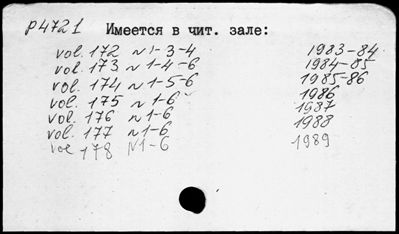 P4721 Имеется в чит. зале:
vol. 172 N 1-3-4 1983-84
vol. 173 N 1-4-6 1984-85
vol. 174 N 1-5-6 1985-86
vol. 175 N 1-6 1986
vol. 176 N 1-6 1987
vol. 177 N 1-6 1988
vol 178 N1-6 1989